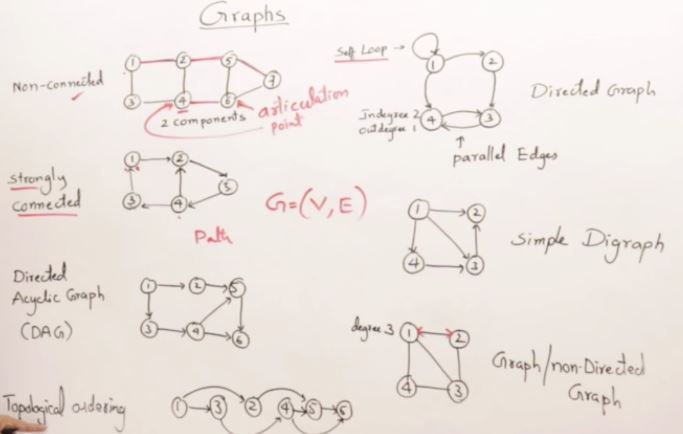 Graphs
Non-connected
1 2 5
7
3 4 6
2 components
articulation
point
Self Loop →
1 2
Indegree 2
outdegree 1
4 3
parallel Edges
Directed Graph
Strongly
Connected
1 2
5
3 4
G=(V,E)
Path
1 2
4 3
Simple Digraph
Directed
Acyclic Graph
(DAG)
1 2 5
3 4 6
degree 3
1 2
4 3
Graph/non-Directed
Graph
Topological ordering
1 3 2 4 5 6